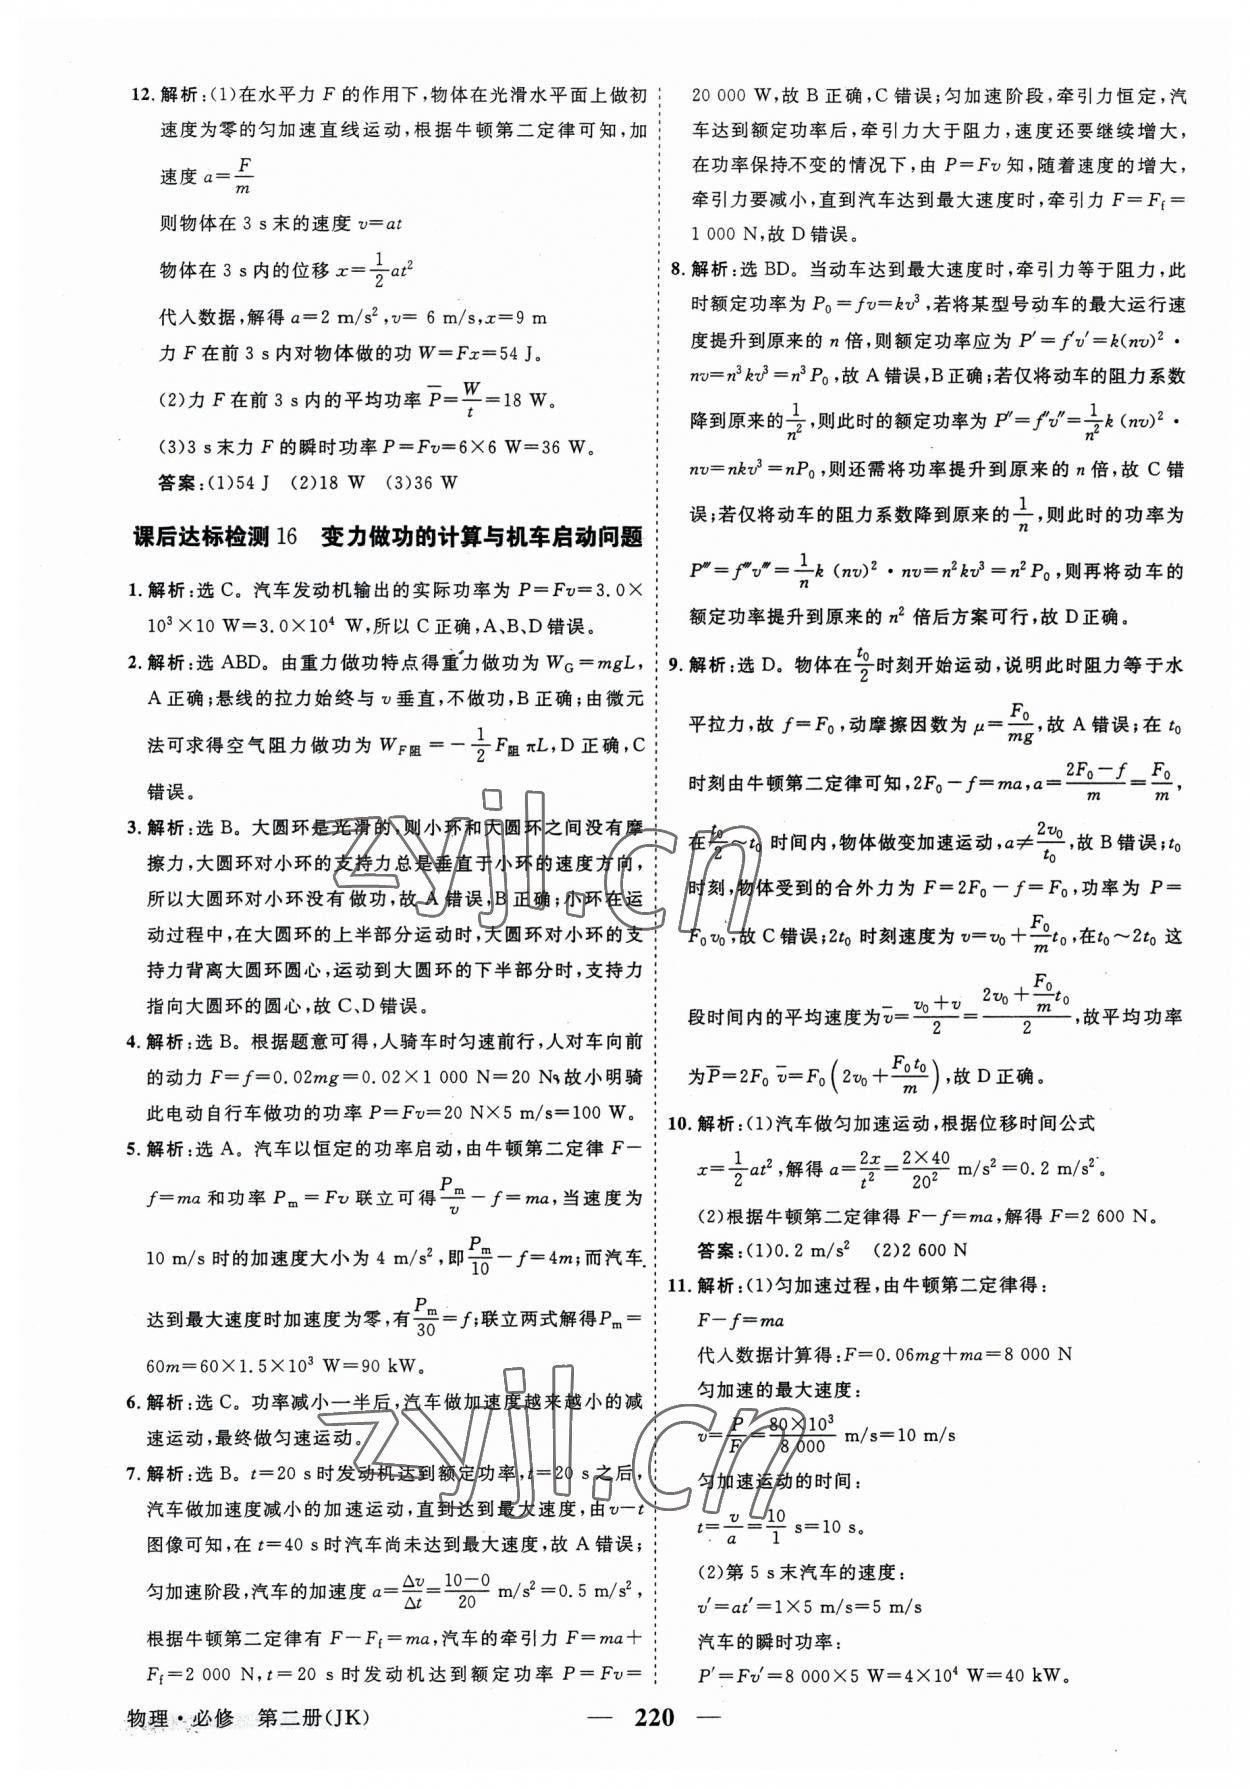 12. 解析:(1)在水平力 F 的作用下,物体在光滑水平面上做初
速度为零的匀加速直线运动,根据牛顿第二定律可知,加
速度 a=F/m
则物体在 3 s 末的速度 v=at
物体在 3 s 内的位移 x=1/2 at²
代入数据,解得 a=2 m/s²,v= 6 m/s,x=9 m
力 F 在前 3 s 内对物体做的功 W=Fx=54 J。
(2)力 F 在前 3 s 内的平均功率 P̄=W/t=18 W。
(3)3 s 末力 F 的瞬时功率 P=Fv=6×6 W=36 W。
答案:(1)54 J (2)18 W (3)36 W
课后达标检测 16 变力做功的计算与机车启动问题
1. 解析:选 C。汽车发动机输出的实际功率为 P=Fv=3.0×
10³×10 W=3.0×10⁴ W,所以 C 正确,A、B、D 错误。
2. 解析:选 ABD。由重力做功特点得重力做功为 W_G=mgL,
A 正确;悬线的拉力始终与 v 垂直,不做功,B 正确;由微元
法可求得空气阻力做功为 W_F阻=-1/2 F阻 πL,D 正确,C
错误。
3. 解析:选 B。大圆环是光滑的,则小环和大圆环之间没有摩
擦力,大圆环对小环的支持力总是垂直于小环的速度方向,
所以大圆环对小环没有做功,故 A 错误,B 正确;小环在运
动过程中,在大圆环的上半部分运动时,大圆环对小环的支
持力背离大圆环圆心,运动到大圆环的下半部分时,支持力
指向大圆环的圆心,故 C、D 错误。
4. 解析:选 B。根据题意可得,人骑车时匀速前行,人对车向前
的动力 F=f=0.02mg=0.02×1 000 N=20 N,故小明骑
此电动自行车做功的功率 P=Fv=20 N×5 m/s=100 W。
5. 解析:选 A。汽车以恒定的功率启动,由牛顿第二定律 F-
f=ma 和功率 Pₘ=Fv 联立可得 Pₘ/v-f=ma,当速度为
10 m/s 时的加速度大小为 4 m/s²,即 Pₘ/10-f=4m;而汽车
达到最大速度时加速度为零,有 Pₘ/30=f;联立两式解得Pₘ=
60m=60×1.5×10³ W=90 kW。
6. 解析:选 C。功率减小一半后,汽车做加速度越来越小的减
速运动,最终做匀速运动。
7. 解析:选 B。t=20 s 时发动机达到额定功率,t=20 s 之后,
汽车做加速度减小的加速运动,直到达到最大速度,由 v-t
图像可知,在 t=40 s 时汽车尚未达到最大速度,故 A 错误;
匀加速阶段,汽车的加速度 a=Δv/Δt=(10-0)/20 m/s²=0.5 m/s²,
根据牛顿第二定律有 F-F_f=ma,汽车的牵引力 F=ma+
F_f=2 000 N,t=20 s 时发动机达到额定功率 P=Fv=
20 000 W,故 B 正确,C 错误;匀加速阶段,牵引力恒定,汽
车达到额定功率后,牵引力大于阻力,速度还要继续增大,
在功率保持不变的情况下,由 P=Fv 知,随着速度的增大,
牵引力要减小,直到汽车达到最大速度时,牵引力 F=F_f=
1 000 N,故 D 错误。
8. 解析:选 BD。当动车达到最大速度时,牵引力等于阻力,此
时额定功率为 P₀=fv=kv³,若将某型号动车的最大运行速
度提升到原来的 n 倍,则额定功率应为 P′=f′v′=k(nv)²·
nv=n³kv³=n³P₀,故 A 错误,B 正确;若仅将动车的阻力系数
降到原来的 1/n²,则此时的额定功率为 P″=f″v″=1/n² k (nv)²·
nv=nkv³=nP₀,则还需将功率提升到原来的 n 倍,故 C 错
误;若仅将动车的阻力系数降到原来的 1/n,则此时的功率为
P‴=f‴v‴=1/n k (nv)²·nv=n²kv³=n²P₀,则再将动车的
额定功率提升到原来的 n² 倍后方案可行,故 D 正确。
9. 解析:选 D。物体在 t₀/2 时刻开始运动,说明此时阻力等于水
平拉力,故 f=F₀,动摩擦因数为 μ=F₀/mg,故 A 错误;在 t₀
时刻由牛顿第二定律可知,2F₀-f=ma,a=(2F₀-f)/m=F₀/m,
在 t₀/2～t₀ 时间内,物体做变加速运动,a≠2v₀/t₀,故 B 错误;t₀
时刻,物体受到的合外力为 F=2F₀-f=F₀,功率为 P=
F₀v₀,故 C 错误;2t₀ 时刻速度为 v=v₀+F₀/m t₀,在 t₀～2t₀ 这
段时间内的平均速度为 v̄=(v₀+v)/2=(2v₀+F₀/m t₀)/2,故平均功率
为 P̄=2F₀ v̄=F₀(2v₀+F₀t₀/m),故 D 正确。
10. 解析:(1)汽车做匀加速运动,根据位移时间公式
x=1/2 at²,解得 a=2x/t²=(2×40)/20² m/s²=0.2 m/s²。
(2)根据牛顿第二定律得 F-f=ma,解得 F=2 600 N。
答案:(1)0.2 m/s² (2)2 600 N
11. 解析:(1)匀加速过程,由牛顿第二定律得:
F-f=ma
代入数据计算得:F=0.06mg+ma=8 000 N
匀加速的最大速度:
v=P/F=(80×10³)/(8 000) m/s=10 m/s
匀加速运动的时间:
t=v/a=10/1 s=10 s。
(2)第 5 s 末汽车的速度:
v′=at′=1×5 m/s=5 m/s
汽车的瞬时功率:
P′=Fv′=8 000×5 W=4×10⁴ W=40 kW。
zyjl.cn
zyjl.cn
物理·必修 第二册(JK)
— 220 —